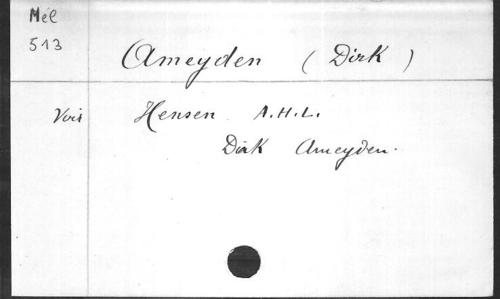 Mél
513
Ameyden (Dirk)
Voir Hensen A.H.L.
Dirk Ameyden.